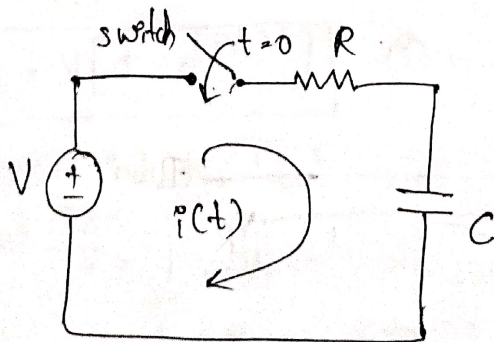 switch t=0 R
V + − i(t) C